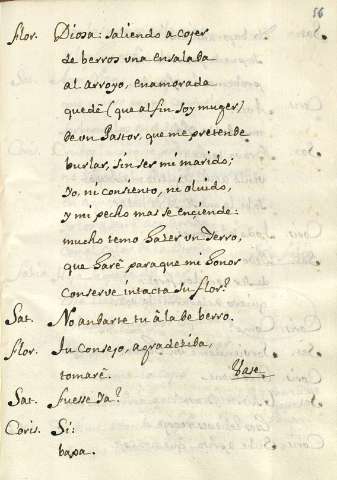 56
Flor. Diosa: saliendo a cojer
de berros vna ensalada
al arroyo, enamorada
quedè (que al fin soy muger)
de vn Pastor, que me pretende
burlar, sin ser mi marido;
yo, ni consiento, ni oluido,
y mi pecho mas se enciende:
mucho temo hazer vn yerro,
que harè para que mi honor
conserve intacta su flor?
Sat. No andarte tu à la de berro.
Flor. Tu Consejo, agradezida,
tomarè. Vase.
Sat. fuesse ya?
Coris. Si:
baxa.